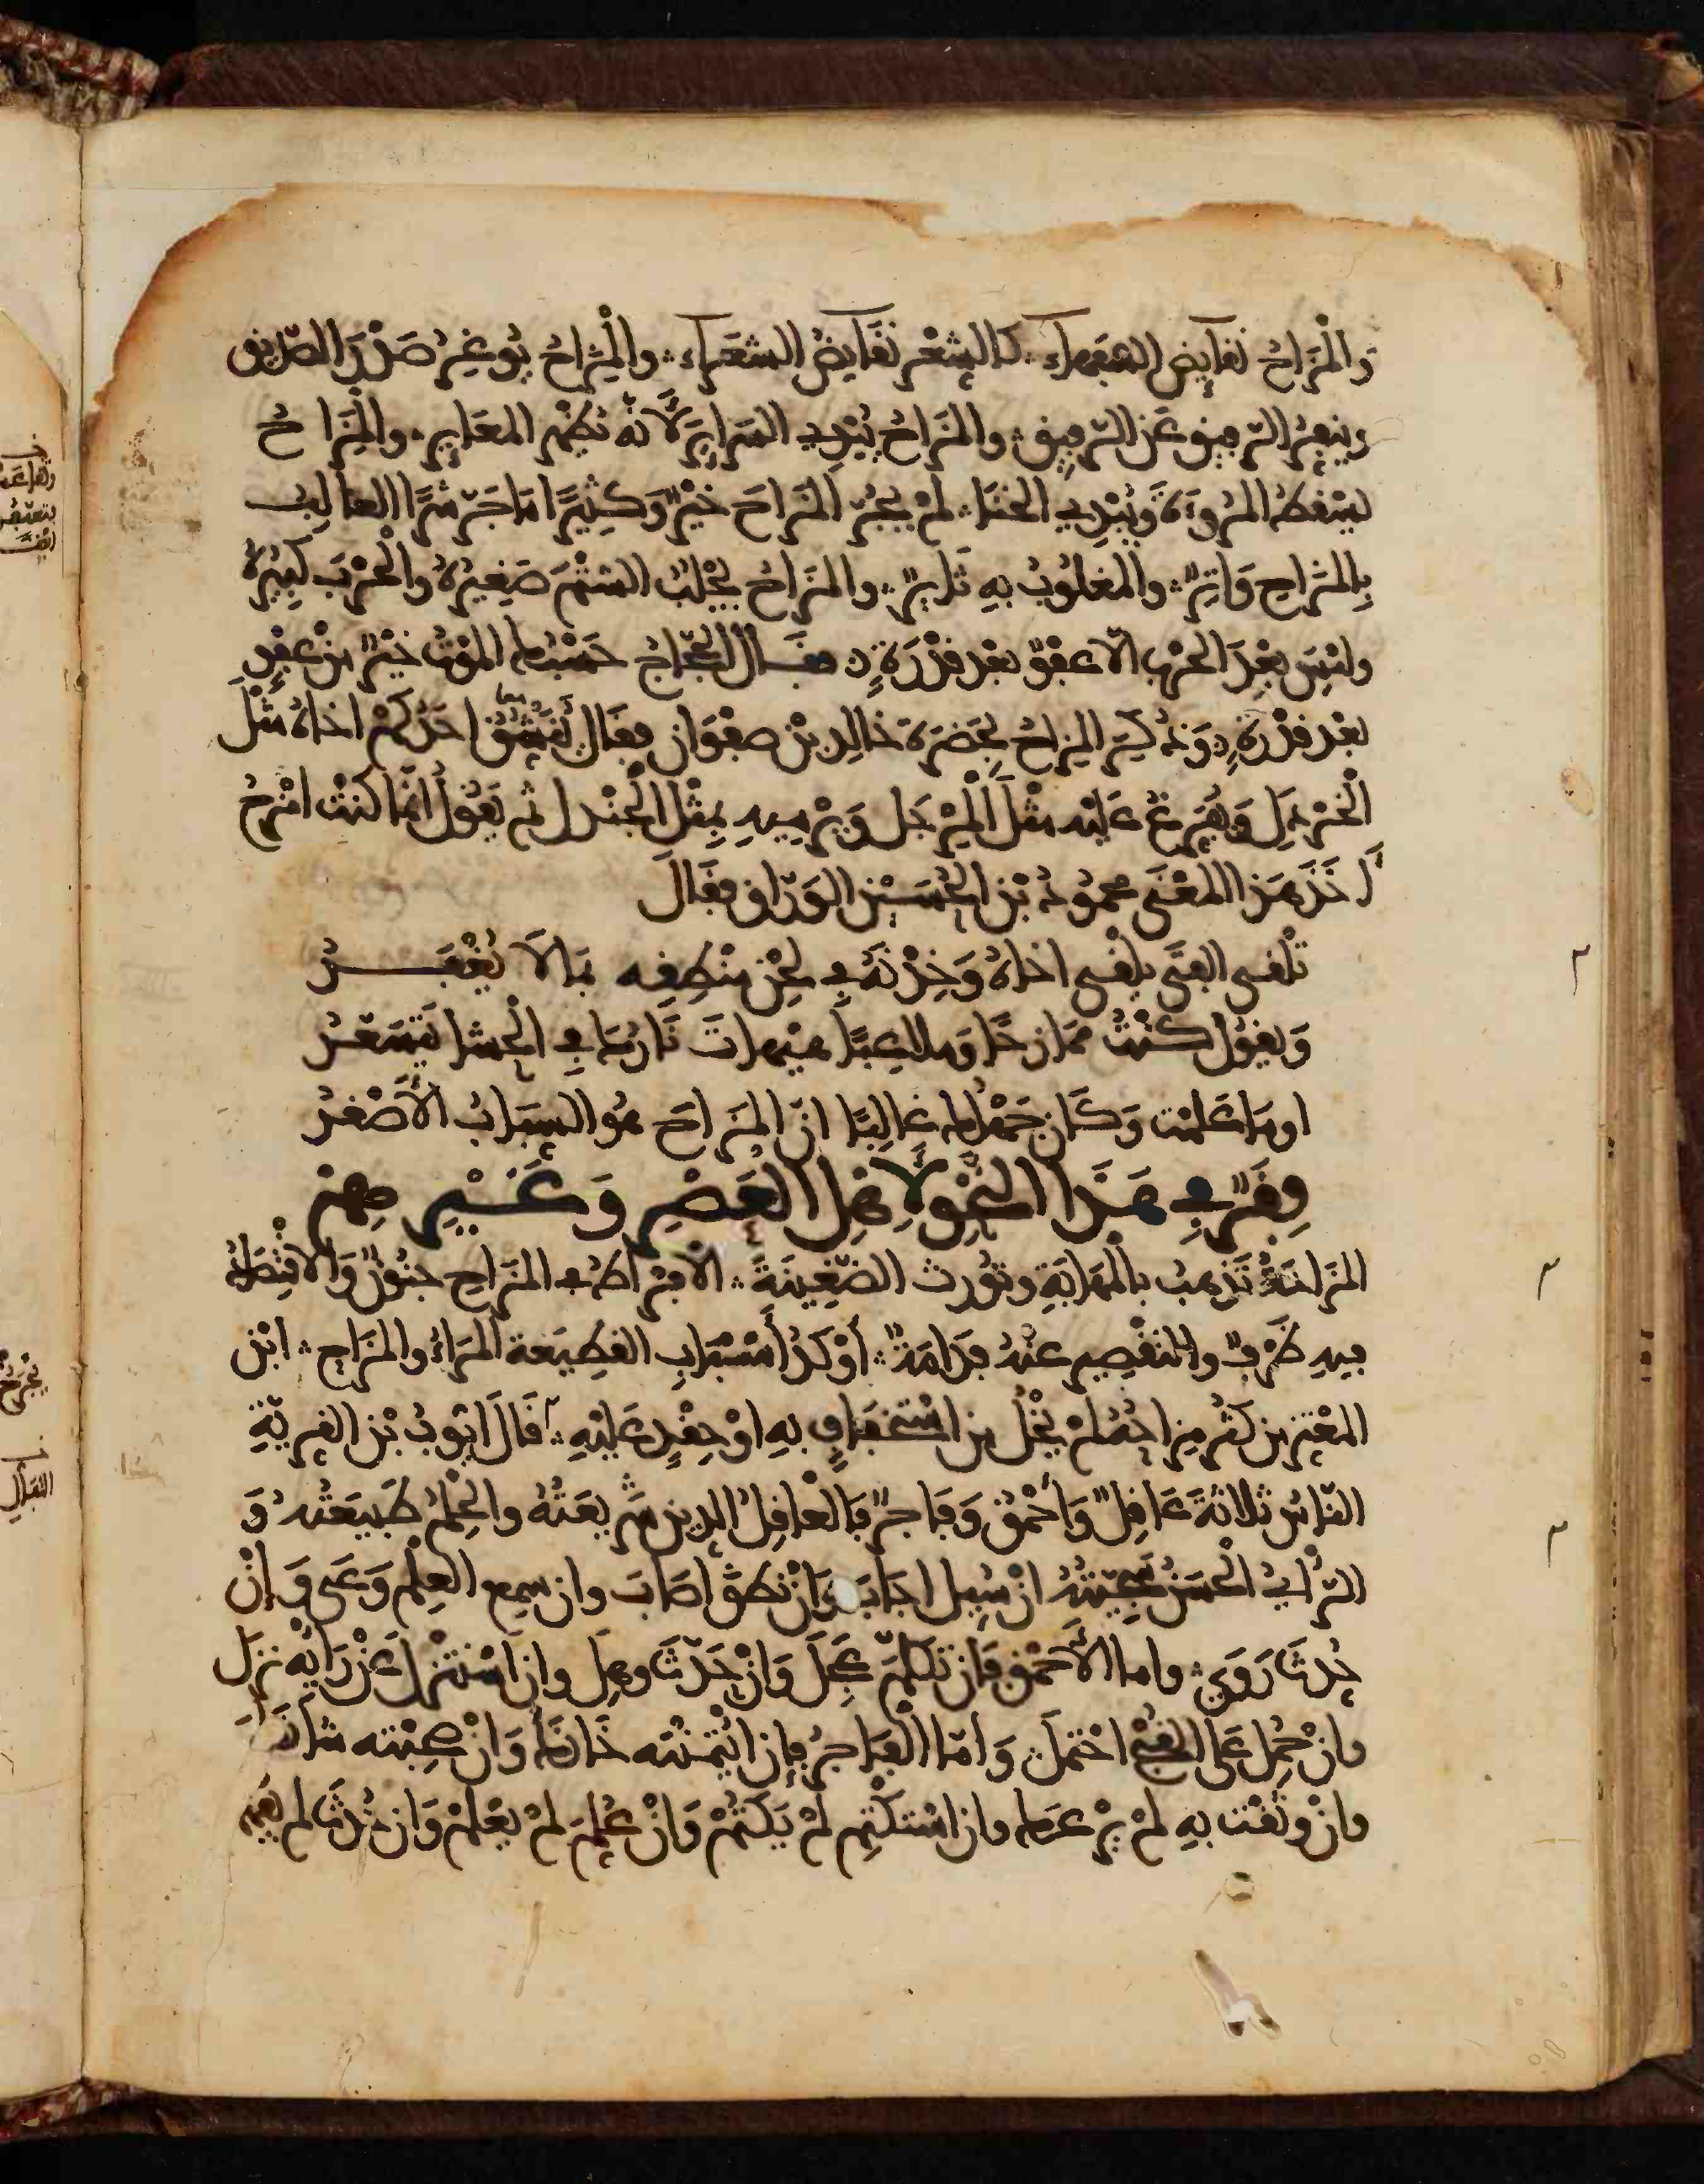 وَالْمُزَاحُ نقايض السفهاء كالشِعْر نَقَايِضُ الشعَراء والمُزَاحُ يُوغِرُ صَدْرَ الصّديق
وينفِرُ الرفيق عَن الرّفيق والمزَاحُ يُبْدِي السرايرَ لأنه يُظهر المعَاير والمُزَاحُ
يسْقطُ المرُوَءَةَ وَيُبْدِي الخنَا لمْ يجُرّ المُزَاحَ خيْرٌ وَكثِيرًا مَا جَرّ شرًّا الغالِبُ
بِالمُزَاحِ وَاتِرٌ والمغلُوبُ بهِ ثَايرٌ والمزَاحُ يجْلبُ الشتْمَ صَغِيرُهُ والْحرْبَ كبِيرُهُ
وليْسَ بعْدَ الحرْب الاّ عفْوٌ بعْد قدْرَةٍ فقال الحجّاجُ حَسْبُك الموْتُ خيْرٌ من عفْوٍ
بعْد قدْرَةٍ وَذُكِرَ المِزاحُ بِحَضرَة خالِد بْن صفْوَان فقَال يُنشِقُ احَدُكمْ اخاهُ مثْلَ
الْخرْدَلِ وَيُفرِغُ عَليْه مثْلَ الْمِرْجَل وَيرْمِيهِ بِمثْل الْجنْدل ثم يَقُولُ انّما كنتُ امْزحُ
أَخَذَ هَذا المعْنَى محمُودُ بْن الحُسَيْن الوَرّاق فقَالَ
تلْقى الفتَى يلْقى اخاهُ وَخِدْنَهُ في لحْن منْطِقِه بما لاَ يُغْفَرُ
وَيقُولُ كنْتُ ممَازحًا وَملاعِبًا هيْهاتَ نَارُكَ في الْحشا تتسَعّرُ
اومَا عَلمْت وَكَان جَهْلك غالِبًا انّ المزَاحَ هوَ السبَابُ الأَصْغرُ
فِقَرٌ في هَذَا النّحْو لأَهْل العَصْرِ وَغَيْرِهِمْ
المزَاحَةُ تَذهبُ بالْمهَابَةِ وتُورث الضّغِينَةَ الافْراطُ في المزَاحِ جنُونٌ وَالاقْتِصَادُ
فيهِ ظَرْفٌ والتقْصِير عنْهُ فدَامَةٌ أوْكَدُ أسْبَابِ القطِيعَة المرَاءُ والمزَاح ابْن
المعْتز من كثُر مِزاحُهُ لمْ يخْلُ من اسْتخفَافٍ بهِ اوْ حِقْدٍ عَليْهِ قَالَ ايّوبُ بْن القِرِّيّةِ
النّاسُ ثلاثةَ عَاقِلٌ وَأحْمَقُ وَفَاجرٌ فَالعَاقِلُ الدِين شَرِيعَتُهُ والحِلمُ طَبيعَتُهُ وَ
الرّأيُ الحَسَنُ سَجِيّتُهُ انْ سُيِل اجَابَ وَانْ نطقَ اصَابَ وان سمِع العِلْم وَعَى وَإنْ
حُدثَ رَوَى واما الأَحْمَق فَان تكلّمَ عَجلَ وَانْ حَدّثَ وهِل وان اسْتنْزل عَنْ رَايْه نزل
وانْ حُمِل عَلى القَبِيح احْتمَل وَامّا الْفاجرُ فإن ايْتمنْتَه خَانَكَ وَانْ صحِبْته شانَكَ
وانْ وَثقْت بهِ لمْ يرْعَك وان اسْتكْتِم لمْ يَكتُمْ وَانْ عُلِّمَ لمْ يعْلمْ وَان حُدّثَ لم يفهم